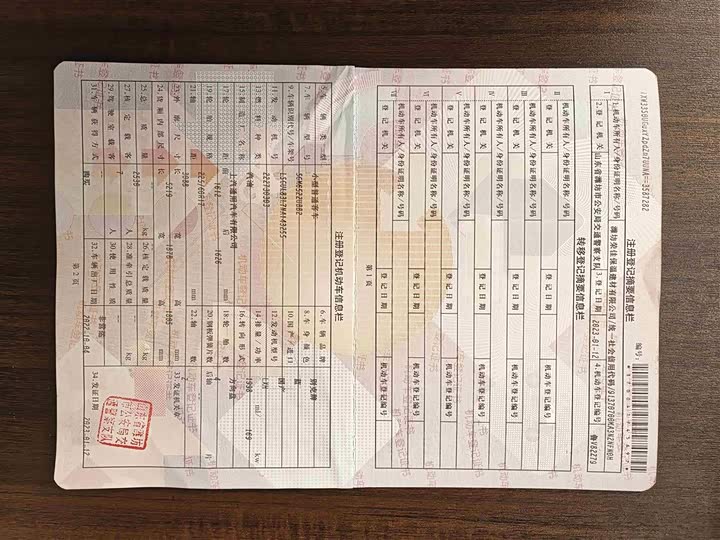 编号:
注册登记摘要信息栏
Ⅰ
1.机动车所有人/身份证明名称/号码 潍坊荣佳保温建材有限公司/统一社会信用代码/
2.登记机关 山东省潍坊市公安局交通警察支队 3.登记日期 2023-01-12 4.机动车登记编号 鲁V82Z79
转移登记摘要信息栏
Ⅱ
机动车所有人/身份证明名称/号码
登记机关 登记日期 机动车登记编号
Ⅲ
机动车所有人/身份证明名称/号码
登记机关 登记日期 机动车登记编号
Ⅳ
机动车所有人/身份证明名称/号码
登记机关 登记日期 机动车登记编号
Ⅴ
机动车所有人/身份证明名称/号码
登记机关 登记日期 机动车登记编号
Ⅵ
机动车所有人/身份证明名称/号码
登记机关 登记日期 机动车登记编号
Ⅶ
机动车所有人/身份证明名称/号码
登记机关 登记日期 机动车登记编号
第1页
注册登记机动车信息栏
5.车辆类型 小型普通客车 6.车辆品牌 别克牌
7.车辆型号 8.车身颜色 蓝
9.车辆识别代号/车架号 10.国产/进口 国产
11.发动机号 222790303 12.发动机型号
13.燃料种类 汽油 14.排量/功率 1998 ml/ 169 kw
15.制造厂名称 上汽通用汽车有限公司 16.转向形式 方向盘
17.轮距 前 1611 后 1626 mm 18.轮胎数 4
19.轮胎规格 225/60R17 20.钢板弹簧片数 后轴 片
21.轴距 3088 mm 22.轴数 2
23.外廓尺寸 长 5219 宽 1878 高 1805 mm
24.货厢内部尺寸 长 宽 高 mm
25.总质量 2590 kg 26.核定载质量 kg
27.核定载客 7 人 28.准牵引总质量 kg
29.驾驶室载客 人 30.使用性质 非营运
31.车辆获得方式 购买 32.车辆出厂日期 2022-10-04
33.发证机关章
34.发证日期 2023-01-12
第2页